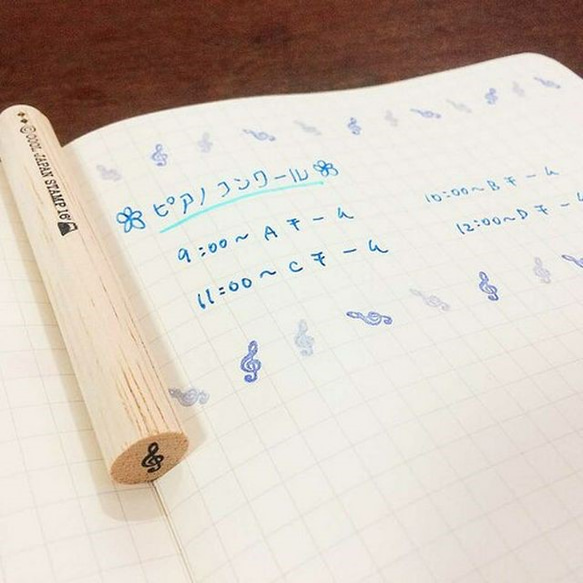 ©COOL JAPAN STAMP 16
ピアノコンクール
9:00〜 Aチーム
10:00〜Bチーム
11:00〜 Cチーム
12:00〜Dチーム